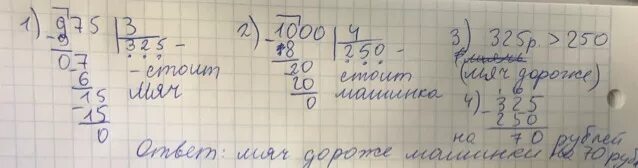 1) 975 | 3
9 | 325 -
07 - стоит
6 мяч
15
15
0
2) 1000 | 4
8 | 250 -
20 стоит
20 машинка
0
3) 325р. > 250
(мяч дороже)
4) 325
250
на 70 рублей
Ответ: мяч дороже машинки на 70 руб